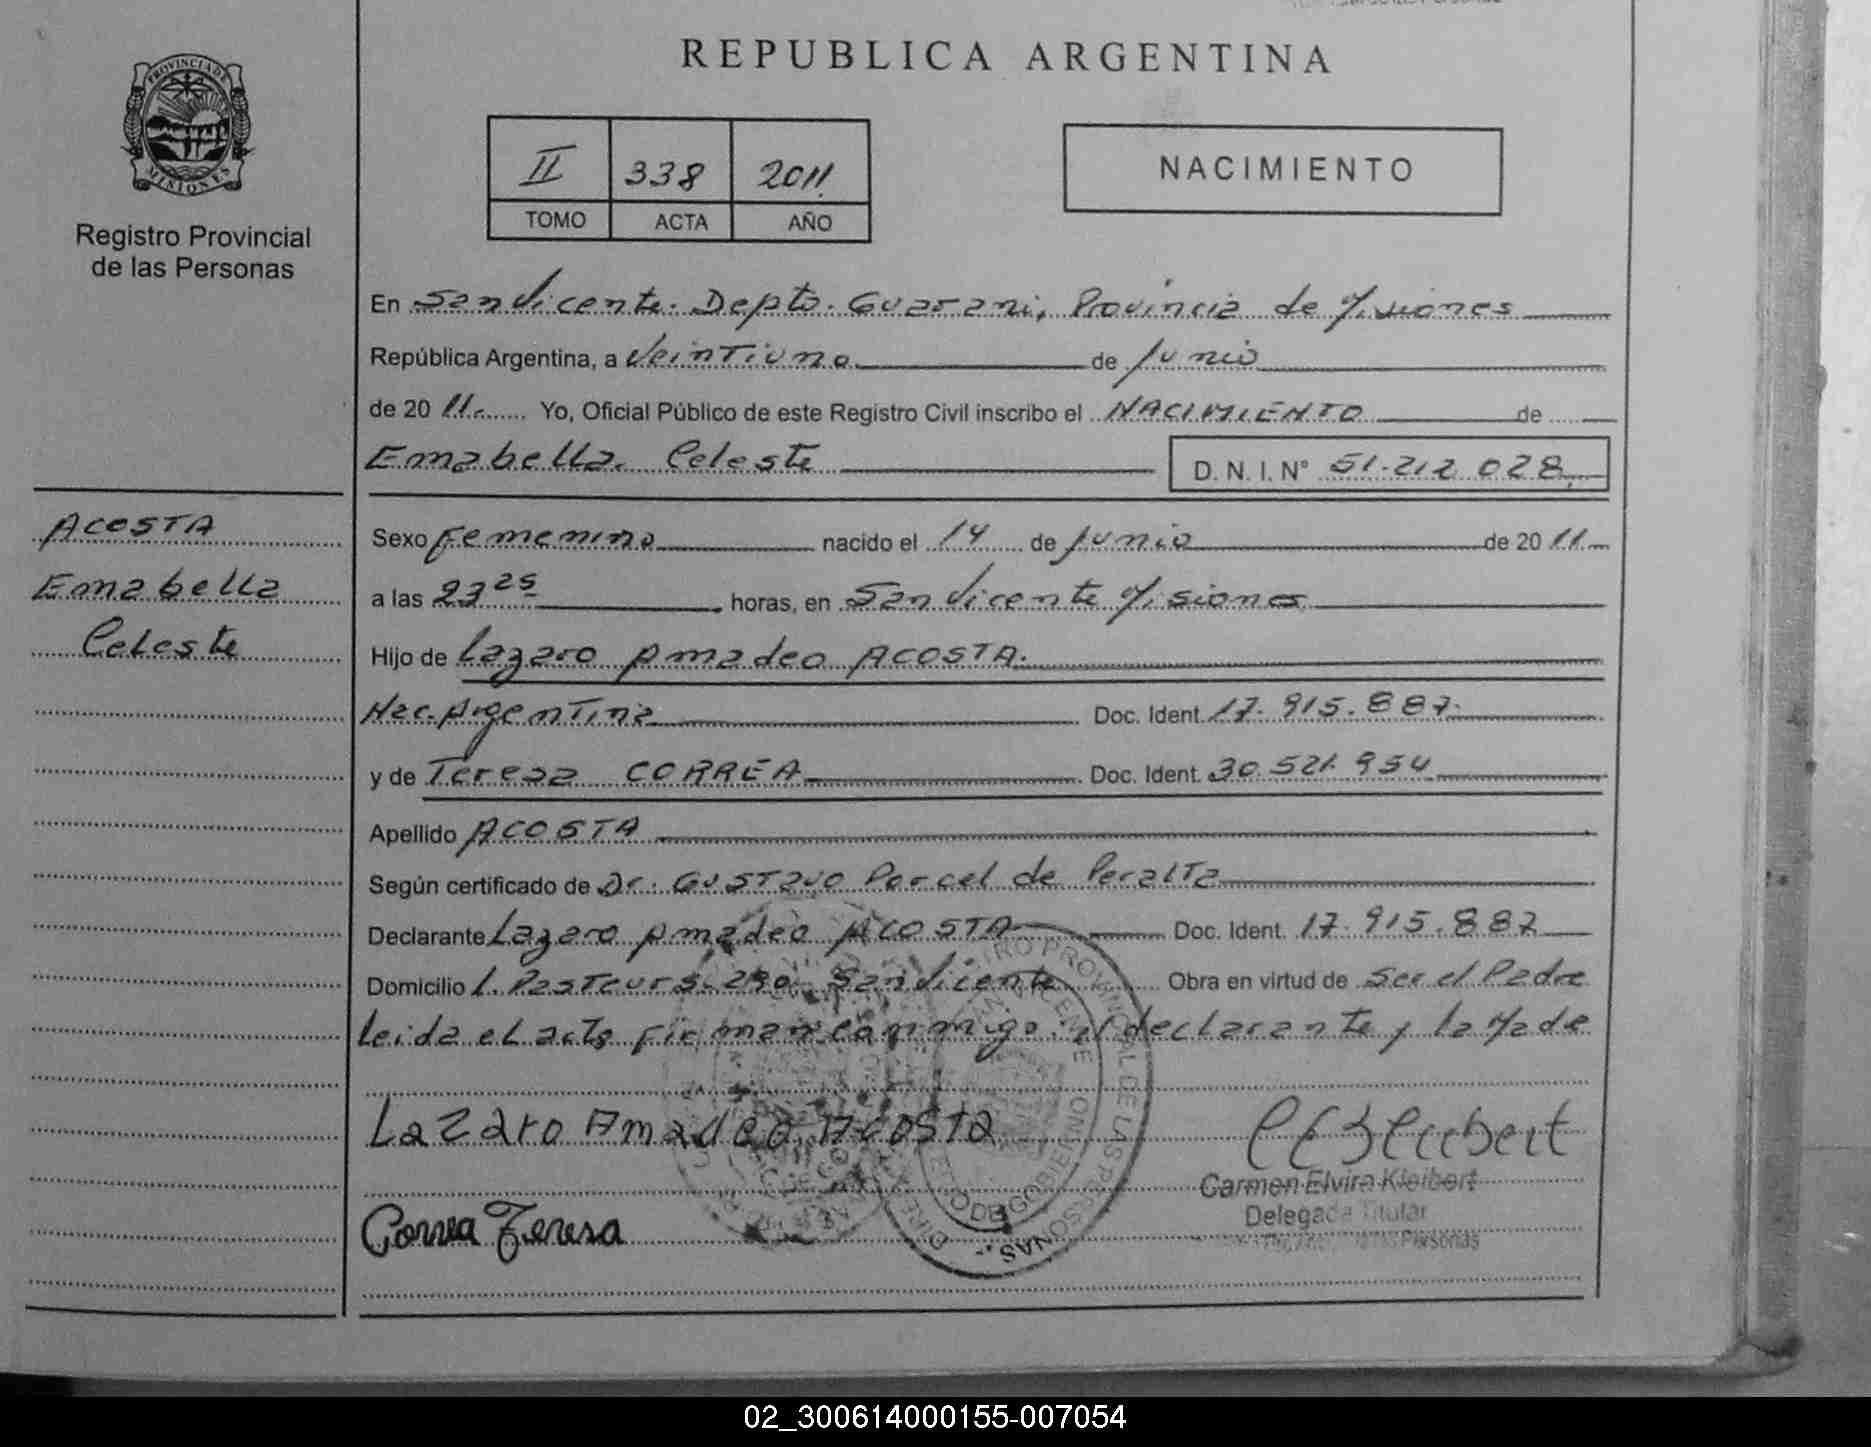 REPUBLICA ARGENTINA
PROVINCIA DE
MISIONES
Registro Provincial
de las Personas
II 338 2011
TOMO ACTA AÑO
NACIMIENTO
En San Vicente. Depto. Guarani, Provincia de Misiones
República Argentina, a Veintiuno de Junio
de 20 11 Yo, Oficial Público de este Registro Civil inscribo el NACIMIENTO de
Emabella Celeste D. N. I. N° 51.212 028
ACOSTA
Emabella
Celeste
Sexo Femenino nacido el 14 de Junio de 20 11
a las 23 25 horas, en San Vicente Misiones
Hijo de Lazaro Amadeo ACOSTA.
Nac. Argentina Doc. Ident. 17.915.887
y de Teresa CORREA Doc. Ident. 30.521.954
Apellido ACOSTA
Según certificado de Dr. Gustavo Porcel de Peralta
Declarante Lazaro Amadeo ACOSTA Doc. Ident. 17.915.887
Domicilio L. Pasteur S. San Vicente Obra en virtud de Ser el Padre
Leida el acta firman conmigo: el declarante y la Made
Lazaro Amadeo Acosta
Carmen Elvira Kleibert
Delegada Titular
Personas
Correa Teresa
02_300614000155-007054